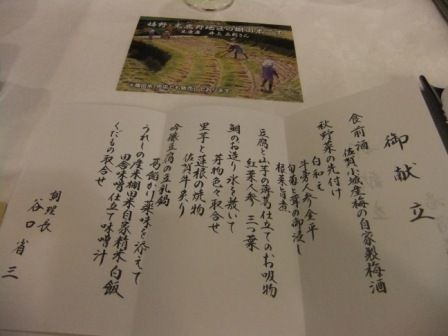 嬉野・吉田地区の棚田米です
生産者　井上
御献立
食前酒
佐賀小城産梅の自家製梅酒
秋野菜の先付け
白和え
牛蒡人参金平
旬菊と茸の御浸し
豆腐と山芋の薄葛仕立てのお吸物
紅葉人参　三つ葉
鯛のお造り氷を敷いて
芽物色々取合せ
里芋と蓮根の焼物
佐賀牛炙り
吟醸豆腐の豆乳鍋
葛餡か薬味を添えて
うれしの産米棚田米自家精米白飯
田舎味噌仕立て味噌汁
くだもの取合せ
調理長
谷口省三